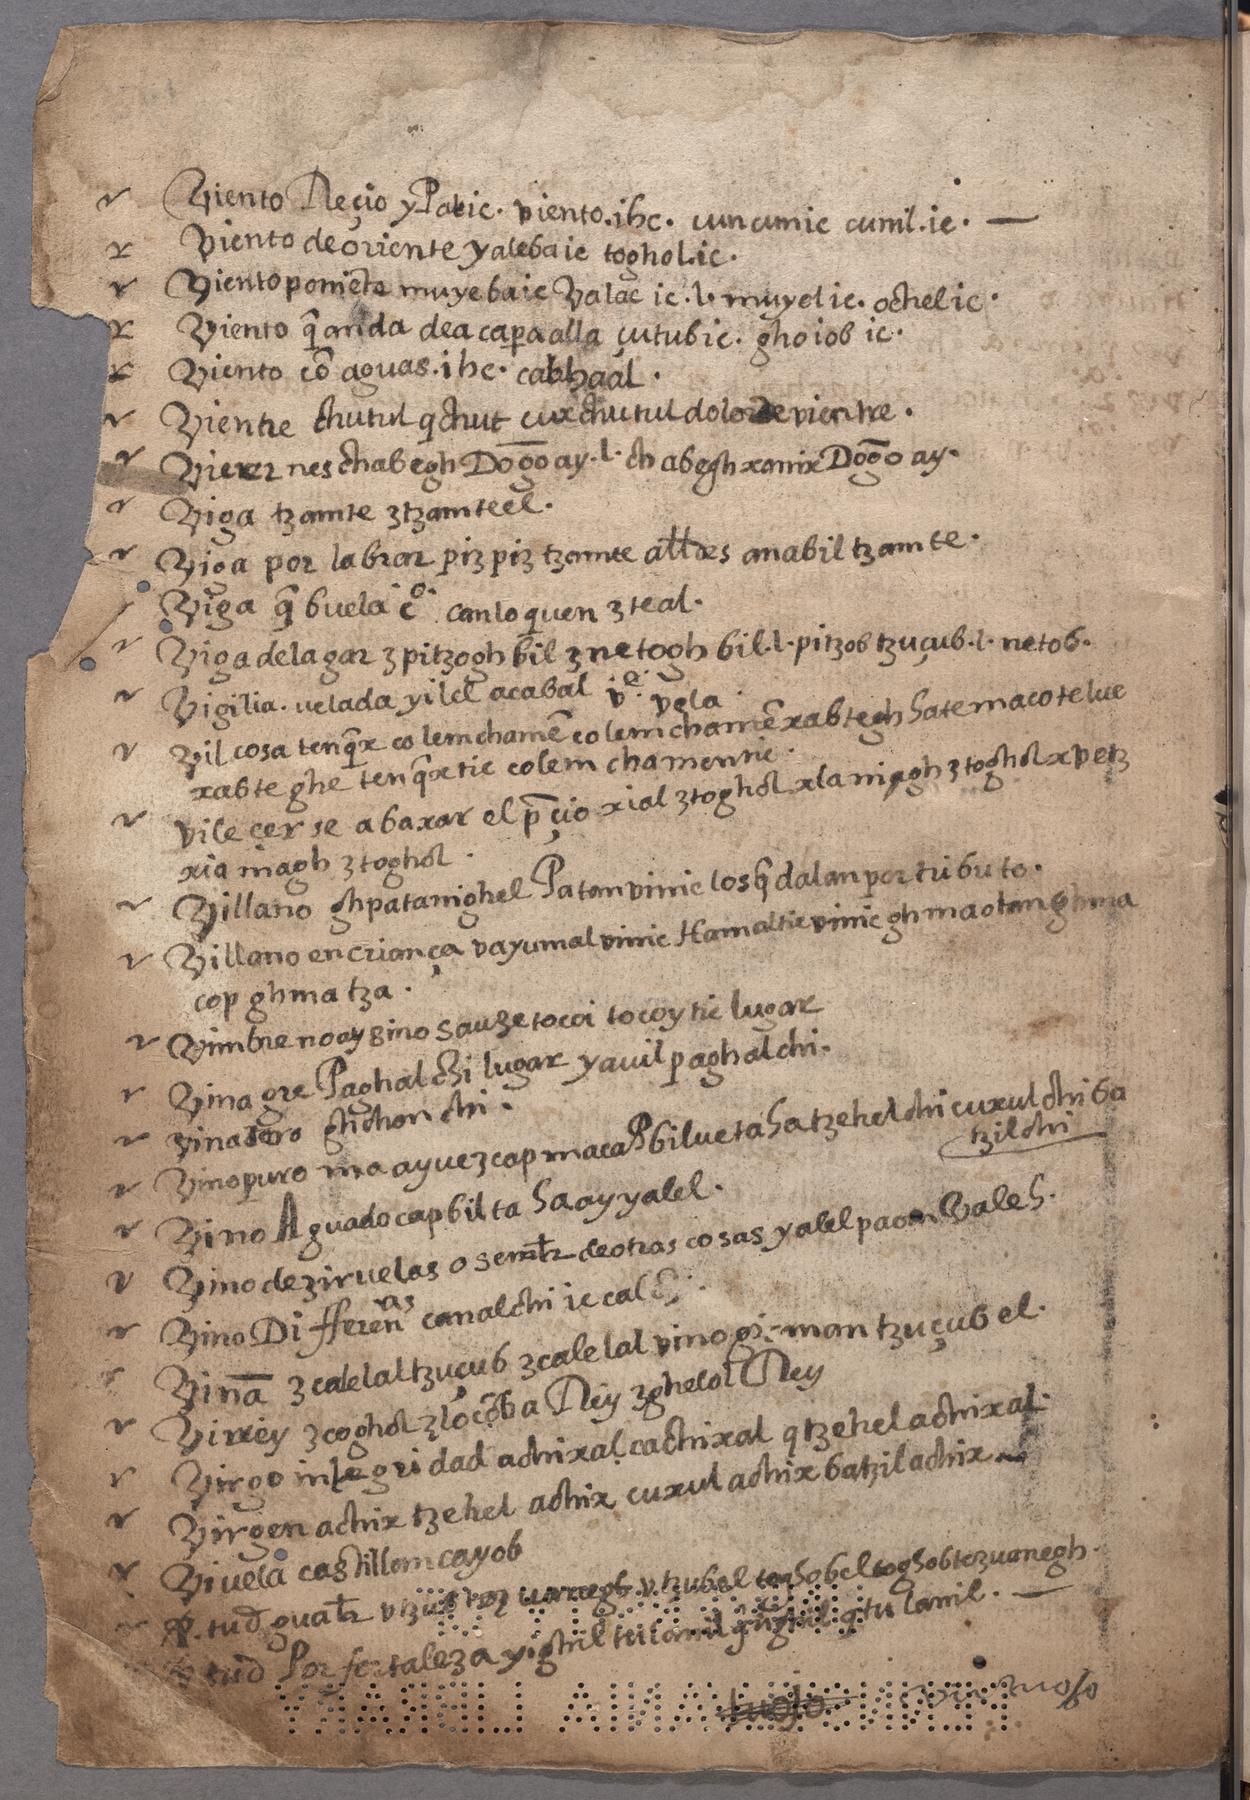 Viento Reçio y Patic. viento. ihc. cun cumic cuml. ic. —
Viento de oriente yalebaic toghol. ic.
Viento poniēte muyebaic Valac ic. l. muyel ic. ochel ic.
Viento q̄ anda de aca paa alla çutub ic. ghoiob ic.
Viento cō aguas. ihc. cabhaal.
Vientre chutul q chut cux chutul dolor de vientre.
nes chabegh Dōgō ay. l. chabegh xonix Dōgō ay.
Viga tzamte ztzamteel.
Viga por labrar piz piz tzamte anabil tzamte.
Viga q̄ buela cō. canloquen zteal.
Viga de lagar zpitzogh bil znetogh bil. l. pitzob tzuçub. l. netob.
Vigilia. uelada yilel acabal vē. vela
Vil cosa tenq̄x colem chamē colem chamē xabtegh hate maco telue
xabteghe tenq̄x tic colem chamen tic.
vileçer se abaxar el p̄çio xial ztoghol xlamagh ztoghol xpetz
xia magh ztoghol.
Villano ghpatanighel Patan vinic los q̄ dalan por tributo.
Villano en criança vayumal vinic Hamaltic vinic ghmaotan ghma
cop ghmatza.
Vimbre no ay sino sauze tocoi tocoy tic lugar
Vinagre Paghal chi lugar yauil paghal chi.
vinatero ghchon chi.
Vino puro ma ayuc zcap maca Pbiluc ta ha tzehel chi cuxul chi ba
tzil chi
Vino Aguado capbil ta ha ay yalel.
Vino de ziruelas o semt̄r de otras cosas yalel paom Valeh.
Vino Differenas canalchi ic cal chi.
Vinā zcalelal tzuçub zcalelal vino man tzuçub el.
Virrey zcoghol zlocōba Rey zghelol Rey
Virgo integridad achixal cachixal q tzehel achixal.
Virgen achix tzehel achix cuxul achix batzil achix
Viuela castillan cayob
tud guat̄r tezuanegh.
tud Por fortaleza y ighil tulanil q tulanil. —
tuoso
virtuoso
NEWBERRY LIBRARY